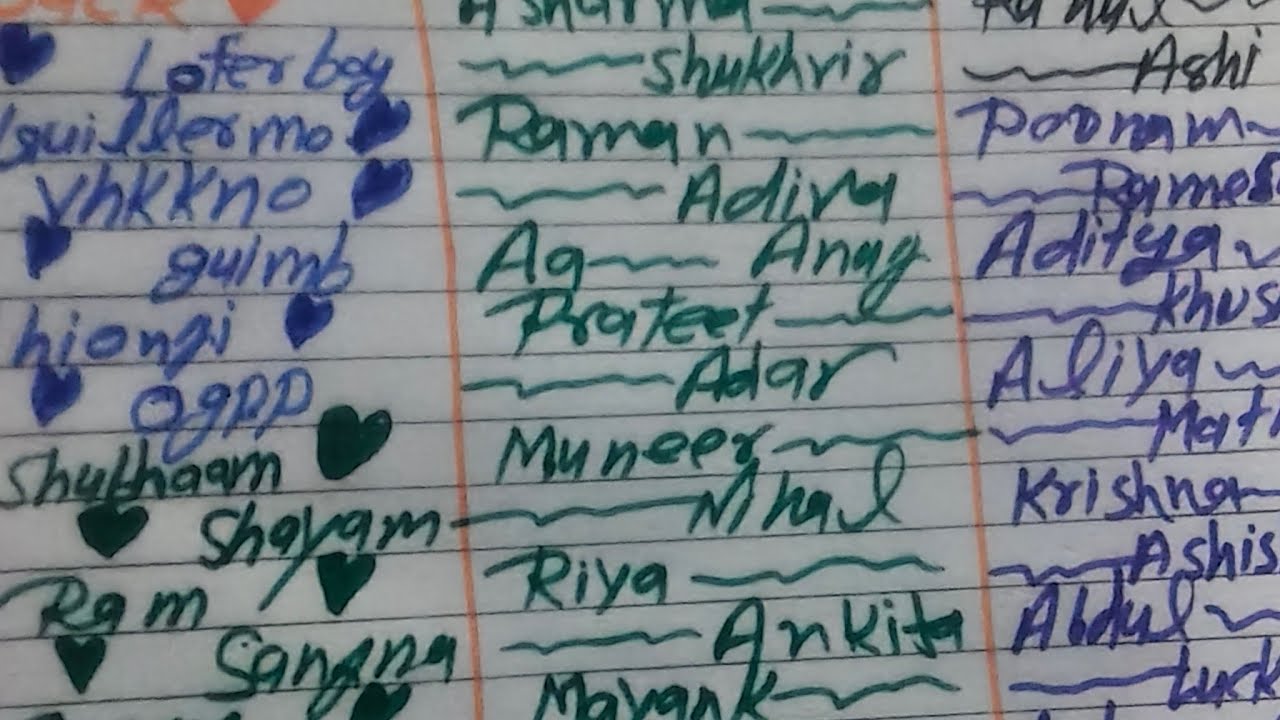 Loferboy
Guillermo
Vhkkno
guimb
hiongi
Ogpp
Shubhaam
Shayam
Ram
Sangna
Asharma
Shukhvir
Raman
Adiva
Ag Anag
Prateet
Adar
Muneer
Nhal
Riya
Ankita
Mayank
Rahul
Ashi
Poonam
Rames
Aditya
Khus
Aliya
Math
Krishna
Ashis
Abdul
Luck